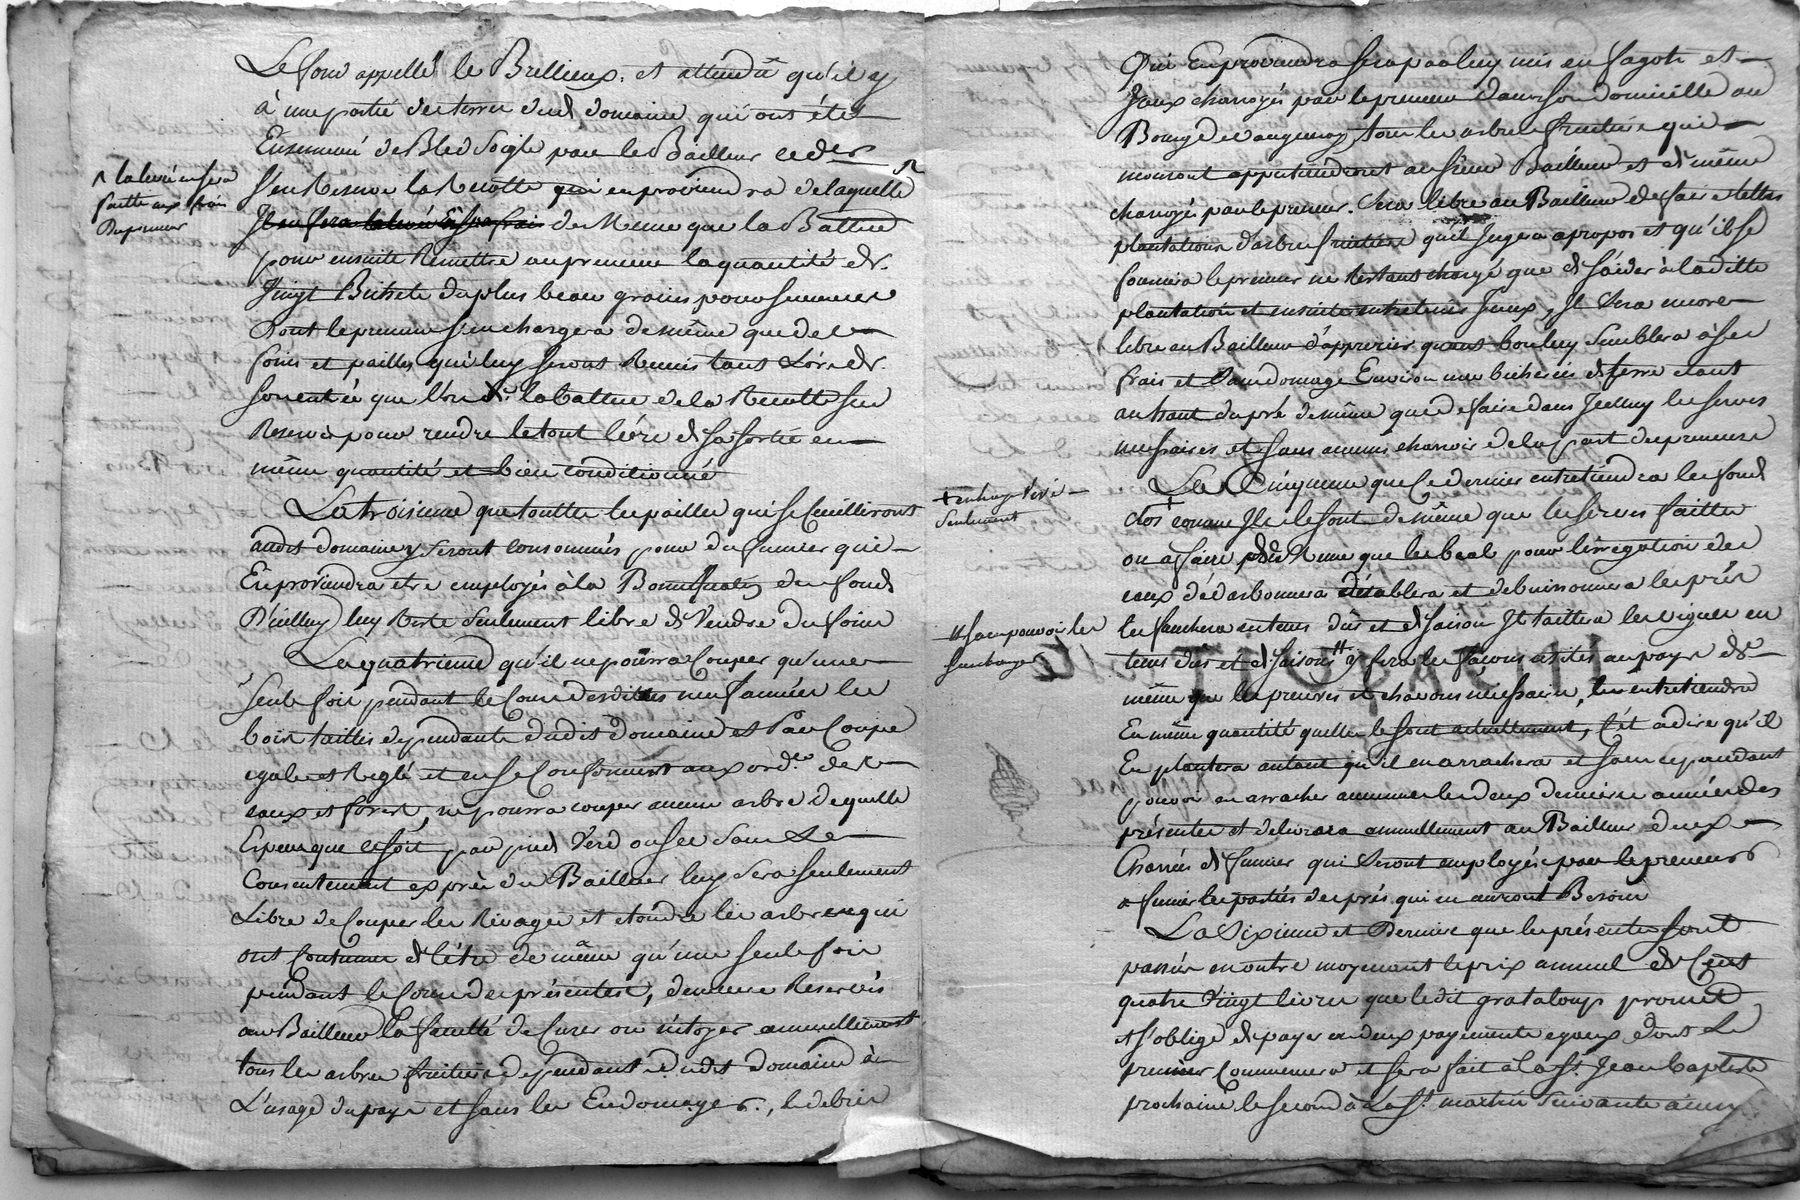 Le fond appellé le Brillieux. et attendû qu'il y
à une partie des terres dud domaine qui ont étés
Ensemencé de Bled Soigle par le Bailleur ce der
s'en Reserve la Recolte qui en proviendra de laquelle ^
^ la levée en sera
faitte aux frais
Du preneur
de Meme que la Battue
pour ensuite Remettre au preneur la quantité de
Vingt Bichets du plus beau grains pour semence
Dont le preneur s'en chargera de même que des
foins et pailles qui luy seront Remis tant Lors de
son entrée que lors de la battue de la Recolte sus
Reservée pour rendre le tout lors de sa sortie en
même quantité et bien conditionné
La troisieme que touttes les pailles qui se Cueilliront
audit domaine y seront consommées pour du fumier qui
En proviendra etre employés à la Bonnification des fonds
D'icelluy luy Reste seulement libre de Vendre du foin
La quatrieme qu'il ne pourra Couper qu'une
seule fois pendant le Cours desdittes neuf années les
bois taillis dependants dudit Domaine et Par Coupe
egale et Reglé et en se Conforment aux ord.ces des
eaux et forest, ne pourra couper aucun arbre de quelle
Espece que ce soit par pied Verd ou sec sans Le
Consentement exprès du Bailleur luy sera seulement
Libre de Couper les Rivages et etondre les arbres qui
ont Coutume de l'être de même qu'une seule fois
pendant le Cours des présentes, demeure Reservés
au Bailleur la faculté de Curer ou netoyer annuellement
tous les arbres fruitiers dependant dudit domaine à
L'usage du pays et sans les Endomager, le debris
Qui En proviendra sera par luy mis en fagots et
Iceux charroyés par le preneur dans son domicille au
Bourg de tous les arbres fruitiers qui
mouront appartiendront au sieur Bailleur et de même
charroyés par le preneur. Sera libre au Bailleur de faire telles
plantations d'arbres fruitiers qu'il Jugera apropos et qu'il se
fournira le preneur ne Restant chargé que de s'aider à laditte
plantation et ensuite entretenir Iceux, Il Sera encore
libre au Bailleur d'approprier quant bon luy Semblera à ses
frais et Sans domage Environ une bicherée de terre etant
au haut du pré de même que de faire dans Icelluy les serves
necessaires et sans aucuns charrois de la part du preneur
La Cinquieme que Ce dernier entretiendra les fonds
+ en hays Vive
Seulement
clos + comme Ils le sont de même que les serves faittes
ou à faire que les beal pour l'irregation des
eaux d'édarbonnera détablera et debuissonnera les prés
les fauchera en tems dûs et de saison Il taillera les vignes en
# sans pouvoir les
surcharger
tems dûs et de saisons # y fera les façons usités au pays de
même que les preuves et chavons necessaires, les entretiendra
En même quantité quelles le sont actuellement, C'ét à dire qu'il
En plantera autant qu'il en arrachera et sans cependant
pouvoir en arracher aucunes les deux dernieres années des
présentes et delivrera annuellement au Bailleur deux
Charrées de fumier qui Seront employés par le preneur
a fumer les parties des prés qui en auront Besoin
La Sixieme et Derniere que les présentes sont
passées en outre moyenant le prix annuel de Cent
quatre Vingt livres que ledit grataloup promet
et s'oblige de payer en deux payements egaux dont Le
premier Commencera et sera fait à la St. Jean baptiste
prochaine le second à la St. martin suivante ainsy